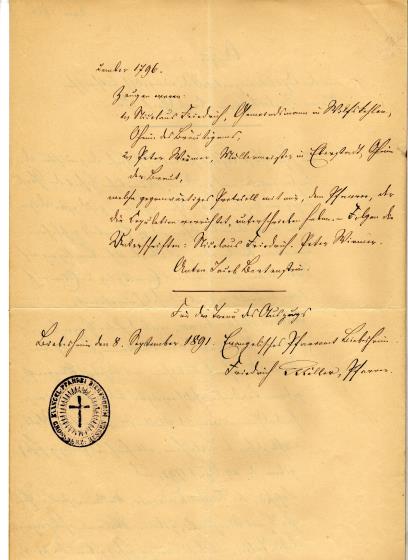 zember 1796.
Zeugen waren:
1, Nicolaus Friedrich, Gemeindsmann in Wolfskehlen,
Oheim des Bräutigams,
2, Peter Wiemer, Müllermeister in Eberstadt, Oheim
der Braut,
welche gegenwärtiges Protocoll mit mir, dem Pfarrer, der
die Copulation verrichtet, unterschrieben haben. – Folgen die
Unterschriften: Nicolaus Friedrich. Peter Wiemer.
Anton Jacob
Für die Treue des Auszugs
Biebesheim den 8. September 1891. Evangelisches Pfarramt Biebesheim.
Friedrich Müller, Pfarrer.
EVANGEL. PFARREI BIEBESHEIM
GROSHERZ. HESSEN